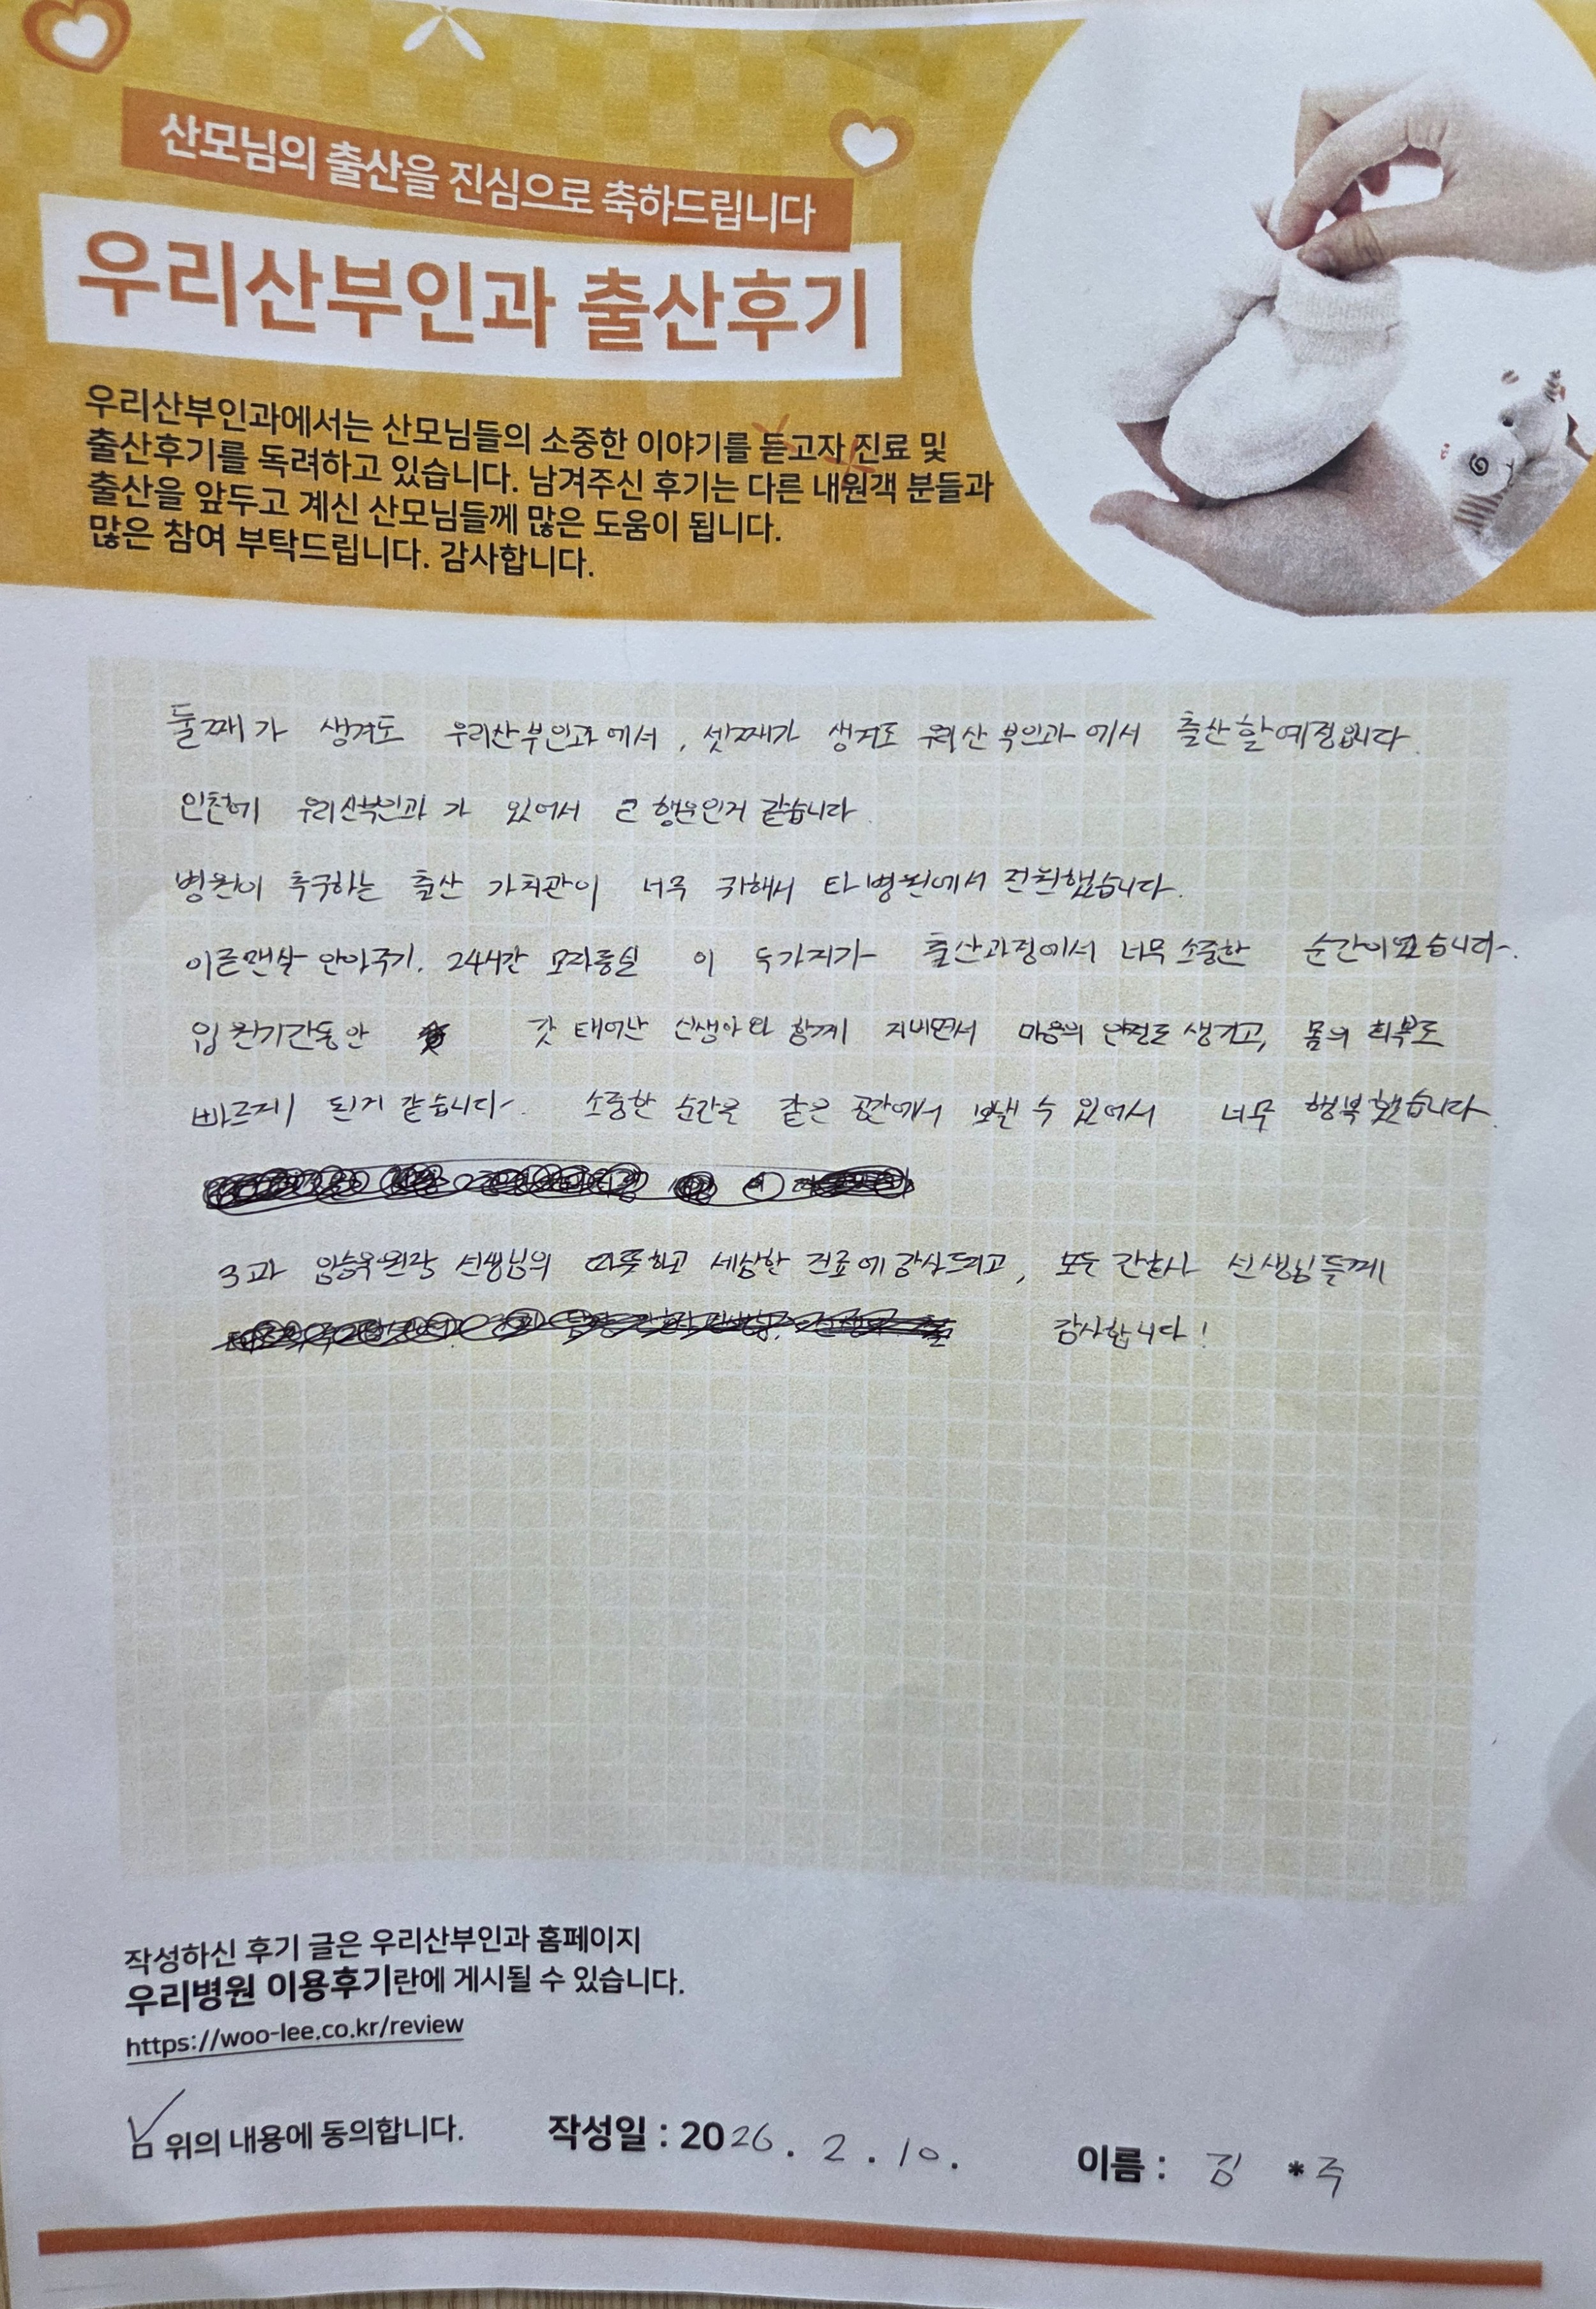 산모님의 출산을 진심으로 축하드립니다
우리산부인과 출산후기
우리산부인과에서는 산모님들의 소중한 이야기를 듣고자 진료 및
출산후기를 독려하고 있습니다. 남겨주신 후기는 다른 내원객 분들과
출산을 앞두고 계신 산모님들께 많은 도움이 됩니다.
많은 참여 부탁드립니다. 감사합니다.
둘째가 생겨도 우리산부인과에서, 셋째가 생겨도 우리산부인과에서 출산할예정입니다.
인천에 우리산부인과가 있어서 큰 행운인거 같습니다.
병원이 추구하는 출산 가치관이 너무 귀해서 타병원에서 전원했습니다.
이른맨살 안아주기. 24시간 모자동실 이 두가지가 출산과정에서 너무 소중한 순간이었습니다.
입원기간동안 갓 태어난 신생아와 함께 지내면서 마음의 안정도 생기고, 몸의 회복도
빠르게 된거 같습니다. 소중한 순간을 같은 공간에서 보낼 수 있어서 너무 행복했습니다.
3과 원장 선생님의 따뜻하고 세심한 진료에 감사드리고, 모든 간호사 선생님들께
감사합니다!
작성하신 후기 글은 우리산부인과 홈페이지
우리병원 이용후기란에 게시될 수 있습니다.
https://woo-lee.co.kr/review
위의 내용에 동의합니다. 작성일 : 2026. 2. 10. 이름 : 김 *주